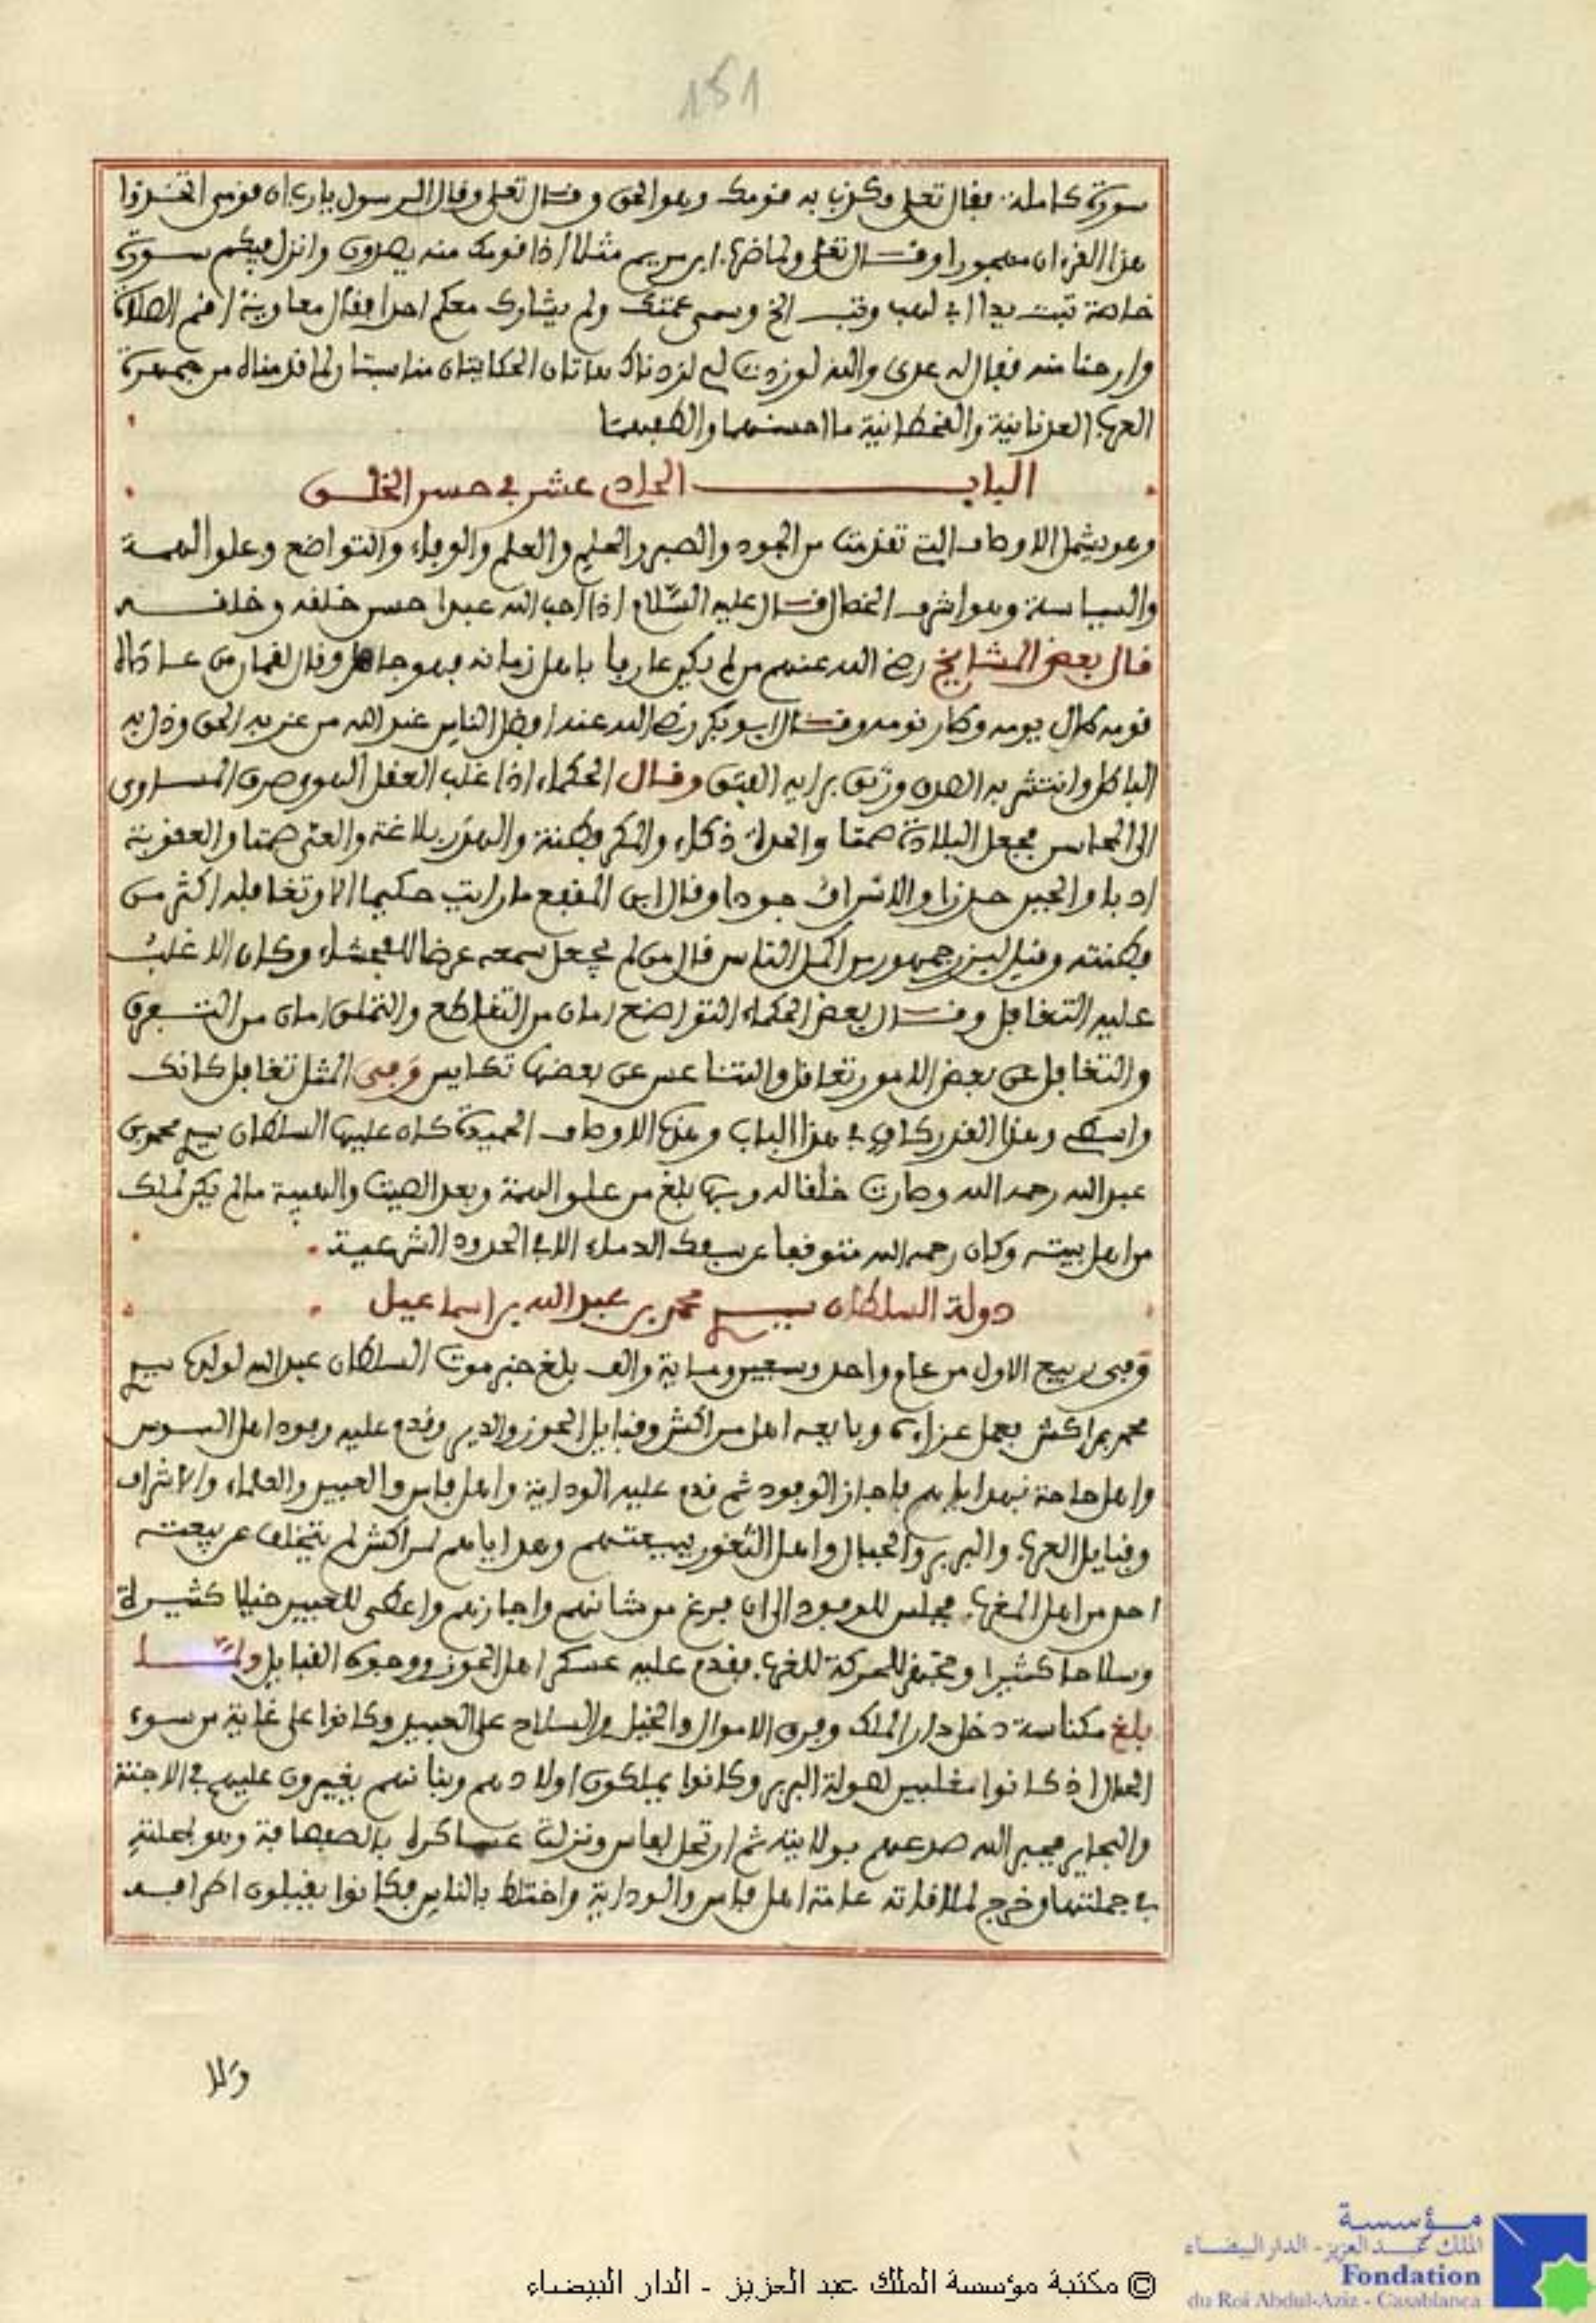 151
سورة كاملة. فقال تعلى وكذب به قومك وهو الحق وقال تعلى وقال الرسول يارب ان قومي اتخذوا
هذا القرءان مهجورا وقال تعلى ولما ضرب ابن مريم مثلا اذا قومك منه يصدون وانزل فيكم سورة
خاصة تبت يدا ابي لهب وتب الخ وسمى عمتك ولم يشارك معكم احدا فقال معاوية اقم الصلاة
وارحنا منه فقال له عدي والله لو زدت لي لزدناك هاتان الحكايتان مناسبتا لما قدمناه من جمهرة
العرب العدنانية والقحطانية ما احسنهما والطفهما
الباب الحادي عشر في حسن الخلق
وهو يشمل الاوصاف التي تقدمت من الجود والصبر والحلم والعلم والوفاء والتواضع وعلو الهمة
والسياسة وهو اشرف الخصال قال عليه السلام اذا احب الله عبدا حسن خلقه وخلقه
قال بعض المشايخ رضي الله عنهم من لم يكن عارفا باهل زمانه فهو جاهل وقال لقمان من ساد
قومه طال يومه وطار نومه وقال ابو بكر رضي الله عنه افضل الناس عند الله من عز به الحق وذل به
الباطل وانتشر به الصدق ورتق برايه الفتق وقال الحكماء اذا غلب العقل الهوى صرف المساوي
الى المحاسن فجعل البلادة صمتا والحدة ذكاء والمكر فطنة والهذر بلاغة والعي صمتا والعقوبة
ادبا والجبن حذرا والاسراف جودا وقال ابن المقفع ما رايت حكيما الا وتغافله اكثر من
فطنته وقيل لبزرجمهور من اكمل الناس قال من لم يجعل سمعه عرضا للفحشاء وكان الاغلب
عليه التغافل وقال بعض الحكماء التواضع امان من التقاطع والتملق امان من التفرق
والتغافل عن بعض الامور تعاقل والتناعس عن بعضها تكايس وفي المثل تغافل كانك
واسطي وهذا القدر كاف في هذا الباب وهذه الاوصاف الحميدة كان عليها السلطان سيدي محمد بن
عبد الله رحمه الله وصارت خلقا له وبها بلغ من علو الهمة وبعد الصيت والهيبة ما لم يكن لملك
من اهل بيته وكان رحمه الله متوقفا عن سفك الدماء الا في الحدود الشرعية.
دولة السلطان سيدي محمد بن عبد الله بن اسماعيل
وفي ربيع الاول من عام واحد وسبعين ومائة والف بلغ خبر موت السلطان عبد الله لولده سيدي
محمد بمراكش فعمل عزاءه وبايعه اهل مراكش وقبايل الحوز والدير وقدم عليه وفود اهل السوس
واهل حاحة بهداياهم فاجاز الوفود ثم قدم عليه الوداية واهل فاس والعبيد والعلماء والاشراف
وقبايل العرب والبربر والجبال واهل الثغور ببيعتهم وهداياهم لمراكش لم يتخلف عن بيعته
احد من اهل المغرب فجلس للوفود الى ان فرغ من شانهم واجازهم واعطى للعبيد خيلا كثيرة
وسلاحا كثيرا وتجهز للحركة للغرب فقدم عليه عسكر اهل الحوز ووجوه القبايل ولما
بلغ مكناسة دخل دار الملك وفرق الاموال والخيل والسلاح على العبيد وكانوا على غاية من سوء
الحال اذ كانوا مغلبين لصولة البربر وكانوا يملكون اولادهم وبناتهم يغيرون عليهم في الاجنة
والبحاير فجبر الله صدعهم بولايته ثم ارتحل لفاس ونزلت عساكره بالصفصافة وهو بمحلته
في جملتها وخرج لملاقاته عامة اهل فاس والوداية واختلط بالناس فكانوا يقبلون اطرافه
ولا
© مكتبة مؤسسة الملك عبد العزيز - الدار البيضاء
مؤسسة
الملك عبد العزيز - الدار البيضاء
Fondation
du Roi Abdul-Aziz - Casablanca